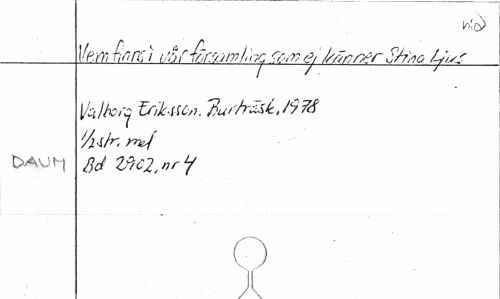 vid
Vem finns i vår församling som ej känner Stina Ljus
Valborg Eriksson. Burträsk, 1978
1/2 str. mel
DAUM Bd 2902, nr 4